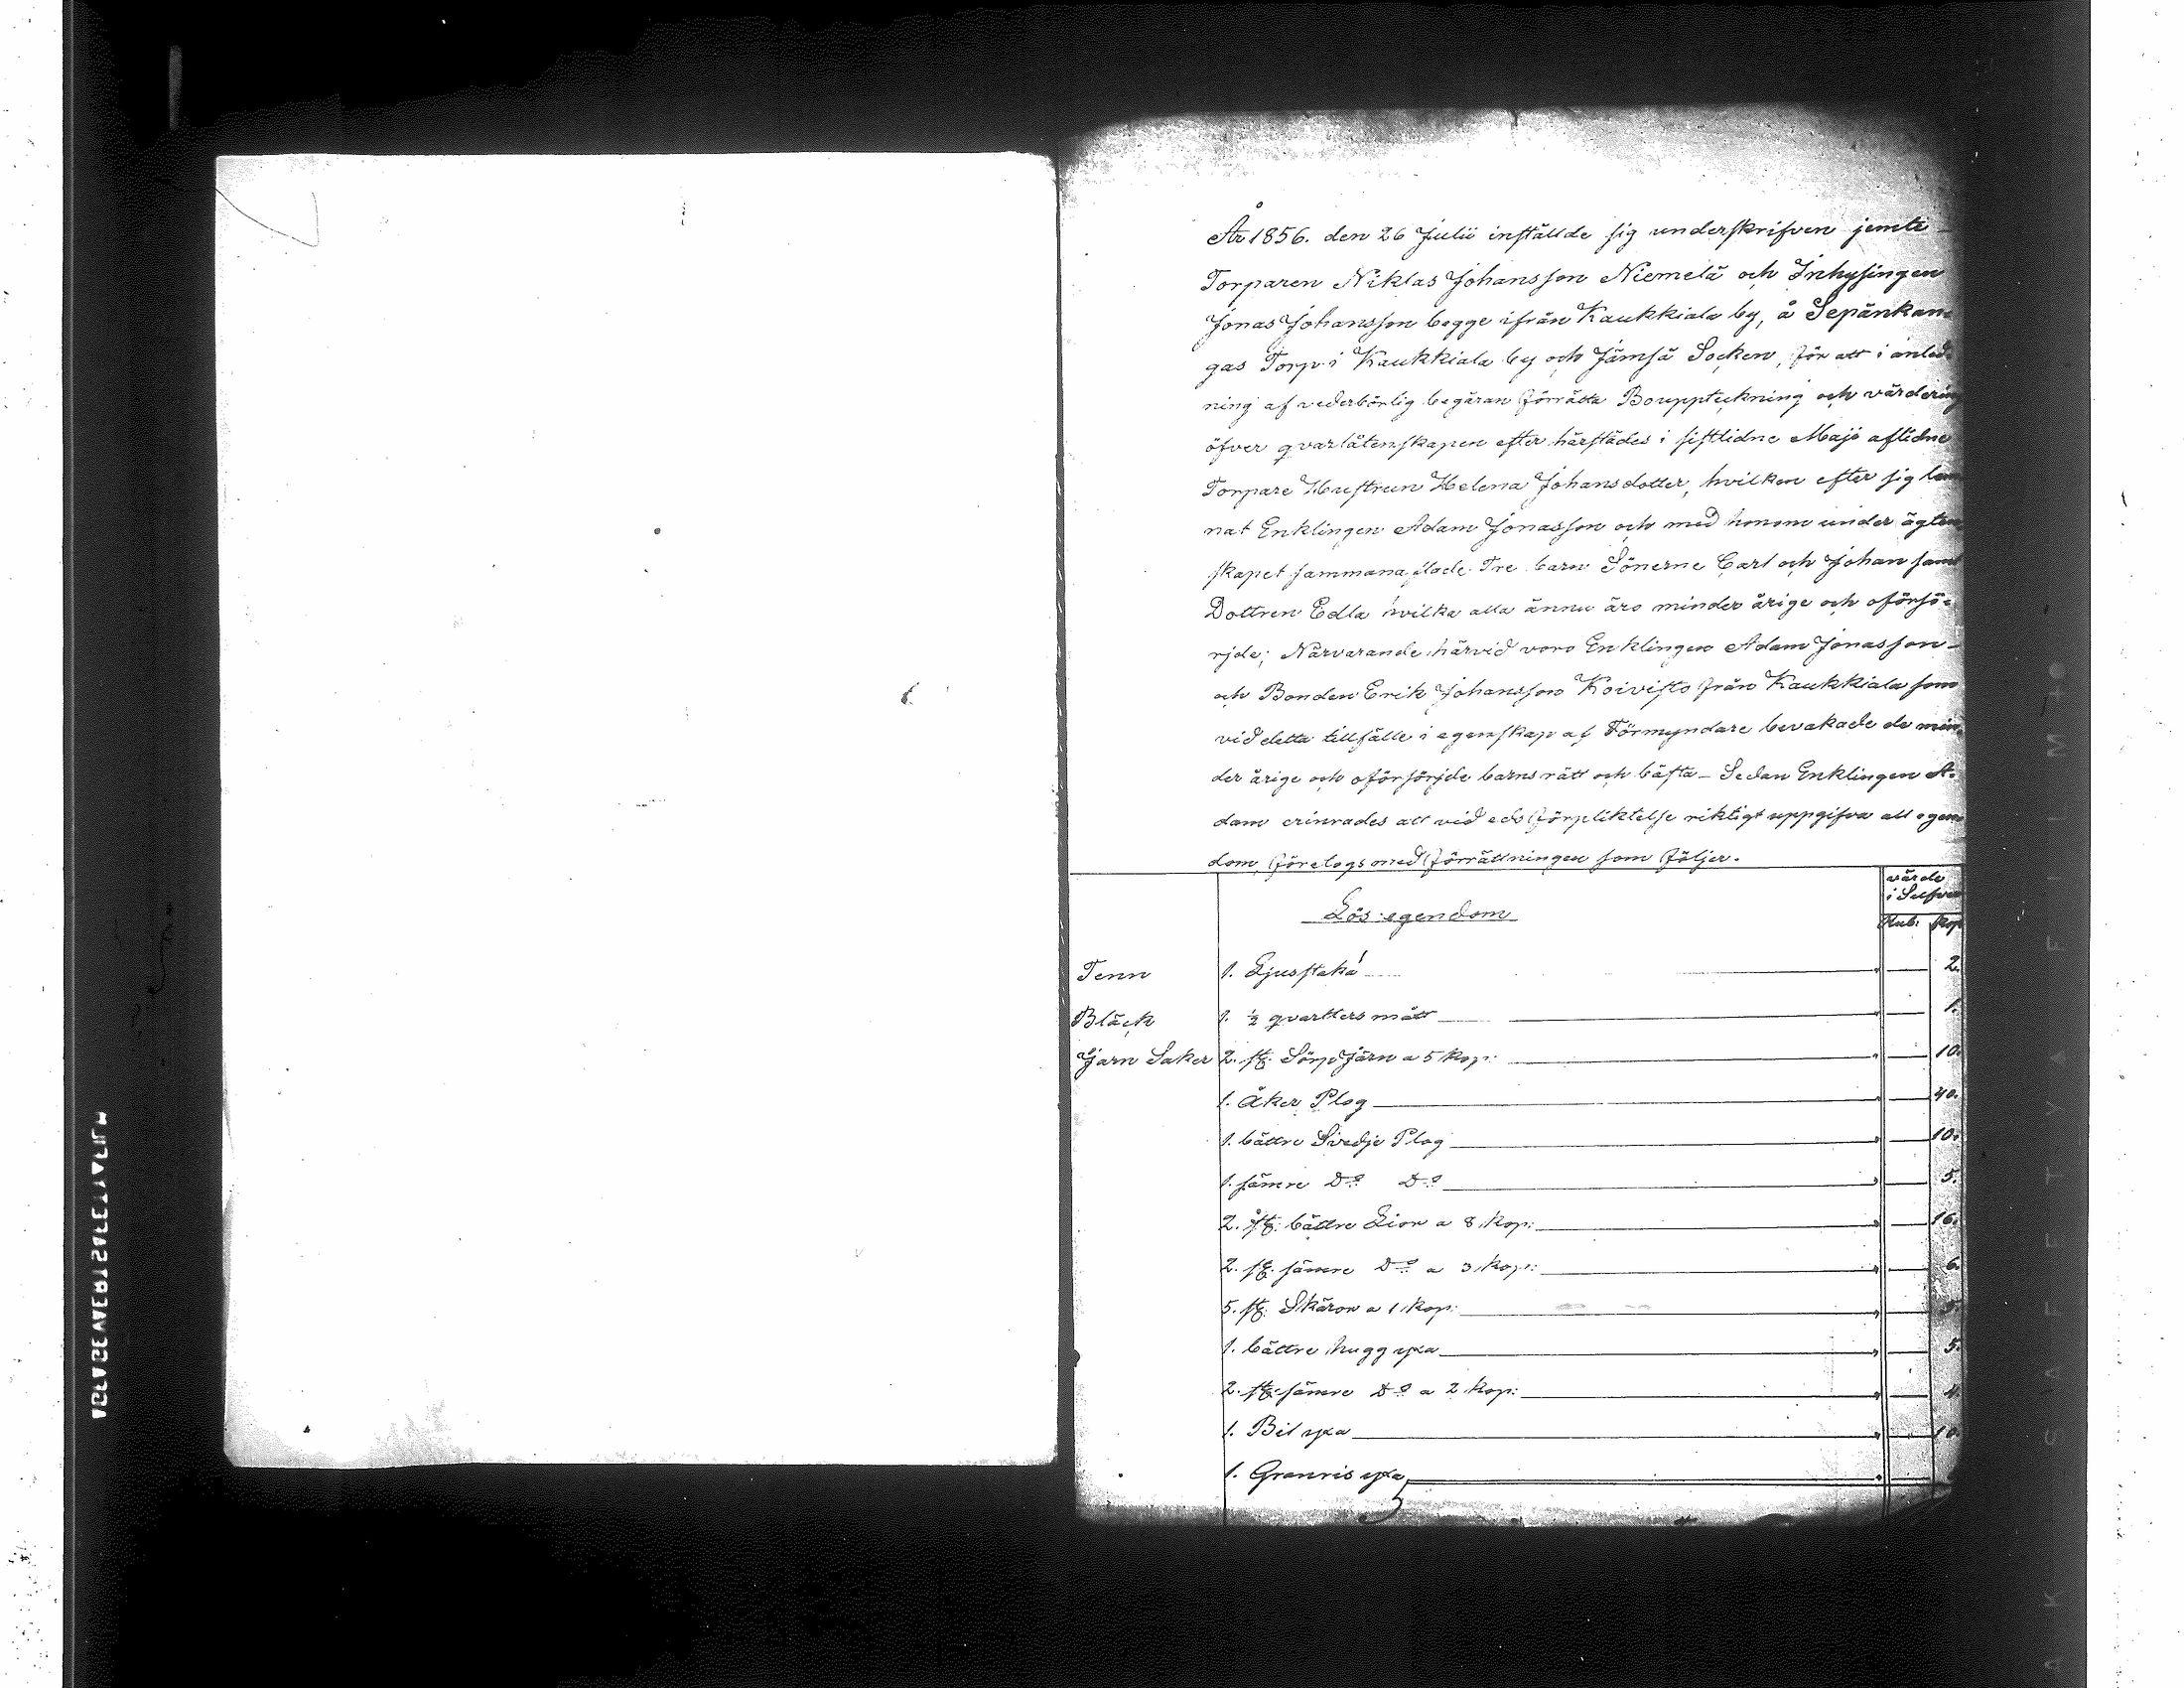 År 1856. den 26 Julii inställde sig underskrifven jemte
Torparen Niklas Johansson Niemelä och Inhysingen
Jonas Johansson begge ifrån Kaukkiala by, å Sepänkan-
gas Torp i Kaukkiala by och Jämsä Socken, för att i anled-
ning af vederbörlig begäran förrätta Bouppteckning och värdering
öfver qvarlåtenskapen efter härstädes i sistlidne Majo aflidne
Torpare Hustrun Helena Johansdotter, hvilken efter sig lem
nat Enklingen Adam Jonasson och med honom under ägten
skapet sammanaflade Tre barn Sönerne Carl och Johan samt
Dottren Edla hvilka alla ännu äro minder årige och oförsö-
rjde; Närvarande härvid voro Enklingen Adam Jonasson
och Bonden Erik Johansson Koivisto från Kaukkiala som
vid detta tillfälle i egenskap af Förmyndare bevakade de min-
der årige och oförsörjde barns rätt och bästa – Sedan Enklingen A-
dam erinrades att vid eds förpliktelse riktigt uppgifva all egen
dom, företogs med förrättningen som följer.
värde
i Silfver
Lös egendom
Rub: Kop
Tenn 1. Ljusstaka " — 2.
Bläck 1. ½ qvarters mått " — 1.
Jjarn Saker 2. st: Sörpjärn a 5 Kop: " — 10.
1. Åker Plog " — 40.
1. bättre Svedje Plog " — 10.
1. sämre Do Do " — 5.
2. st: bättre Lior a 8 Kop: " — 16.
2. st: sämre Do a 3 Kop: " — 6.
5. st: Skäror a 1 Kop: " — 5.
1. bättre hugg yxa " — 5.
2. st: sämre Do a 2 Kop: " — 4.
1. Bil yxa " — 10.
1. Granris yxa " —
AKSAFETY A FILM